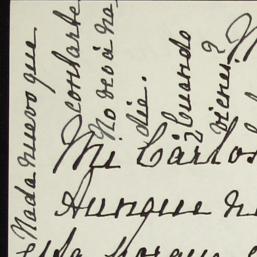 Nada nuevo que
contarte
No veo á na-
die.
¿Cuando
vienes?
Mi Carlos
Aunque
porque